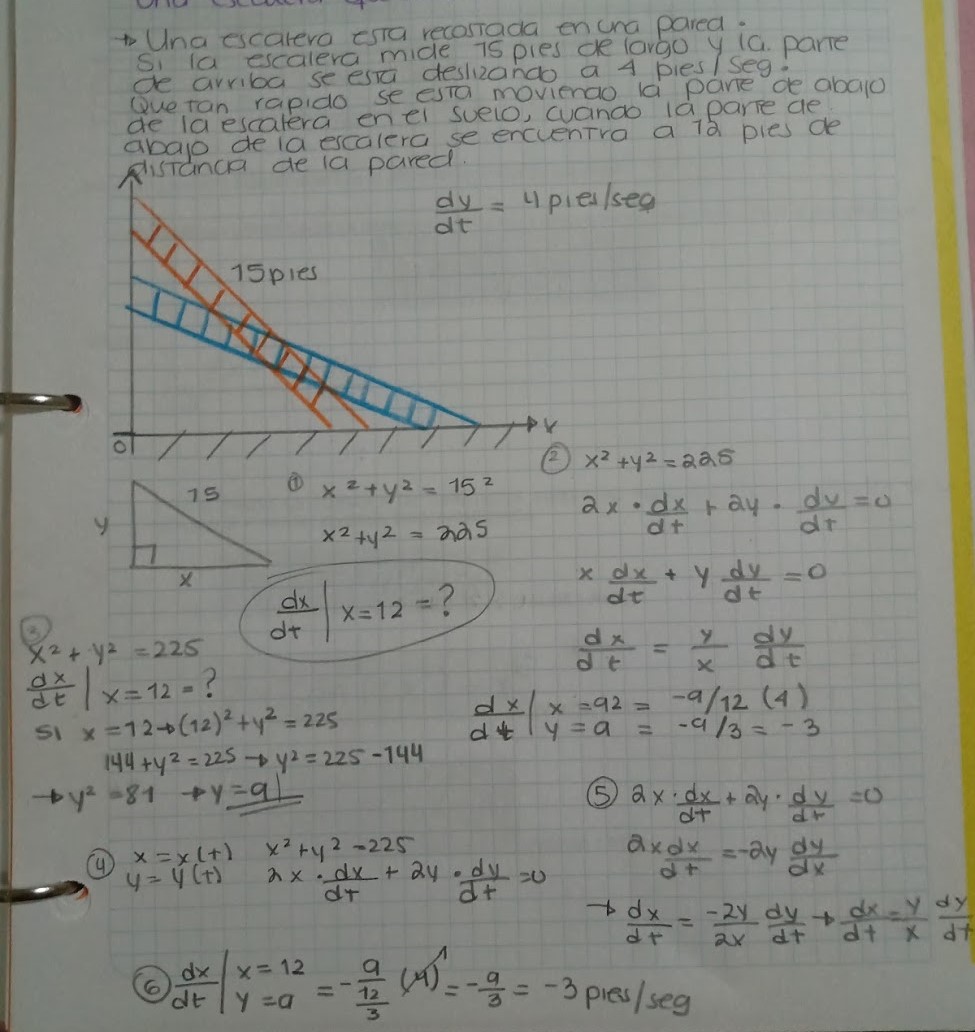 → Una escalera esta recostada en una pared.
Si la escalera mide 15 pies de largo y la parte
de arriba se esta deslizando a 4 pies/seg.
Que tan rapido se esta moviendo la parte de abajo
de la escalera en el suelo, cuando la parte de
abajo de la escalera se encuentra a 12 pies de
distancia de la pared.
dy/dt = 4 pies/seg
15 pies
0
x
② x² + y² = 225
15
① x² + y² = 15²
2x · dx/dt + 2y · dy/dt = 0
y
x² + y² = 225
x
x dx/dt + y dy/dt = 0
dx/dt | x=12 = ?
dx/dt = y/x dy/dt
③
x² + y² = 225
dx/dt | x=12 = ?
dx/dt | x = 92 = -9/12 (4)
y = 9 = -9/3 = -3
Si x=12 → (12)² + y² = 225
144 + y² = 225 → y² = 225 - 144
→ y² = 81 → y = 9
⑤ 2x · dx/dt + 2y · dy/dt = 0
2x dx/dt = -2y dy/dx
④ x = x(t) x² + y² = 225
y = y(t) 2x · dx/dt + 2y · dy/dt = 0
→ dx/dt = -2y/2x dy/dt → dx/dt = y/x dy/dt
⑥ dx/dt | x = 12 y = 9 = - 9/12 3 (4) 1 = - 9/3 = -3 pies/seg